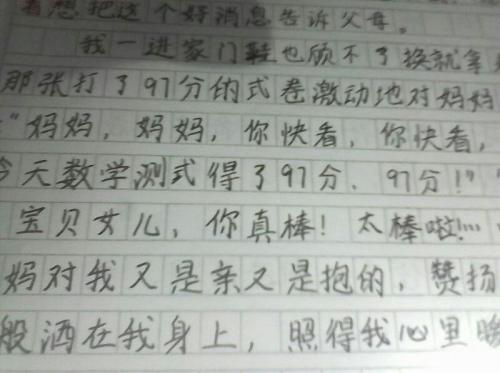 着想把这个好消息告诉父母。
我一进家门鞋也顾不了换就拿
那张打了97分的式卷激动地对妈妈
"妈妈，妈妈，你快看，你快看，
天数学测式得了97分、97分！"
宝贝女儿，你真棒！太棒啦！…
妈对我又是亲又是抱的，赞扬
般洒在我身上，照得我心里暖